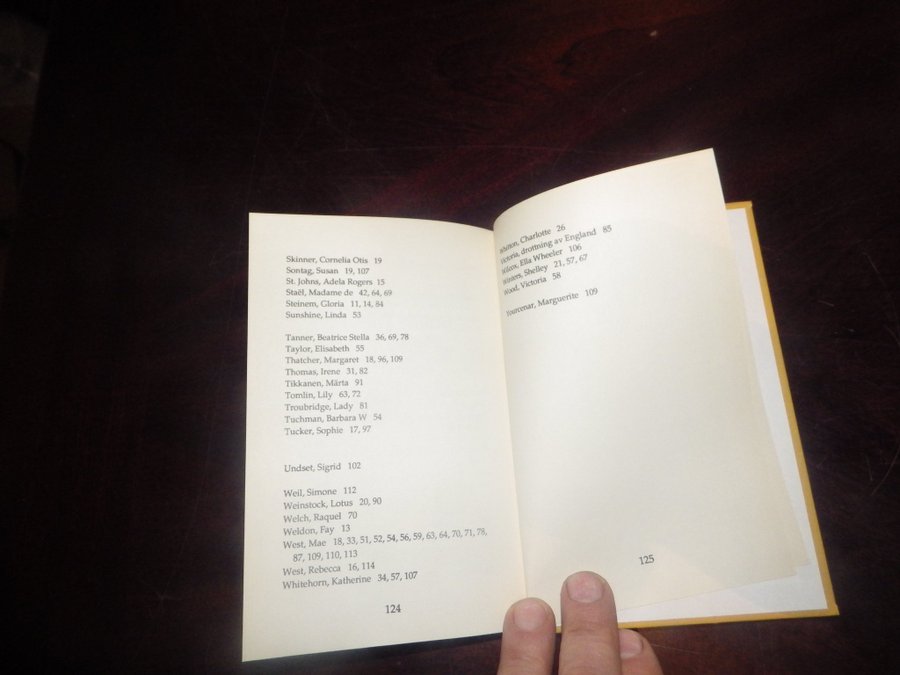 Skinner, Cornelia Otis 19
Sontag, Susan 19, 107
St. Johns, Adela Rogers 15
Staël, Madame de 42, 64, 69
Steinem, Gloria 11, 14, 84
Sunshine, Linda 53
Tanner, Beatrice Stella 36, 69, 78
Taylor, Elisabeth 55
Thatcher, Margaret 18, 96, 109
Thomas, Irene 31, 82
Tikkanen, Märta 91
Tomlin, Lily 63, 72
Troubridge, Lady 81
Tuchman, Barbara W 54
Tucker, Sophie 17, 97
Undset, Sigrid 102
Weil, Simone 112
Weinstock, Lotus 20, 90
Welch, Raquel 70
Weldon, Fay 13
West, Mae 18, 33, 51, 52, 54, 56, 59, 63, 64, 70, 71, 78,
87, 109, 110, 113
West, Rebecca 16, 114
Whitehorn, Katherine 34, 57, 107
124
Whitton, Charlotte 26
Victoria, drottning av England 85
Wilcox, Ella Wheeler 106
Winters, Shelley 21, 57, 67
Wood, Victoria 58
Yourcenar, Marguerite 109
125